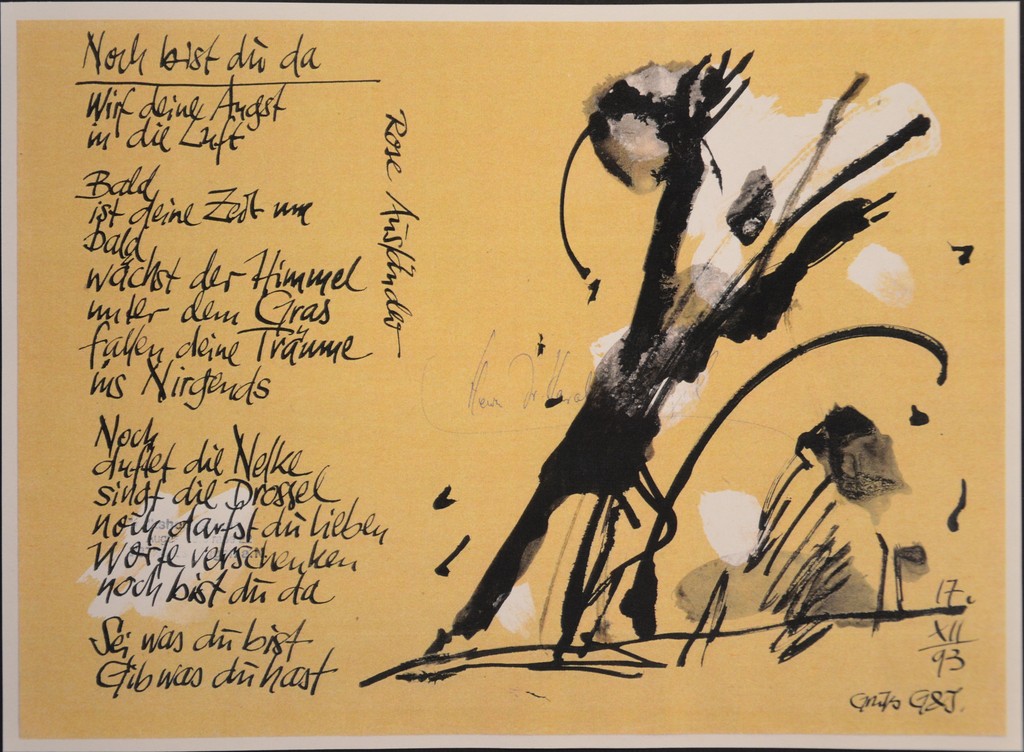 Noch bist dü da
Wirf deine Angst
in die Luft
Bald
ist deine Zeit um
Bald
wächst der Himmel
unter dem Gras
fallen deine Träume
ins Nirgends
Noch
duftet die Nelke
singt die Drossel
noch darfst du lieben
Worte verschenken
noch bist du da
Sei was du bist
Gib was du hast
Rose Ausländer
17.
XII
93
Gruß G&J.